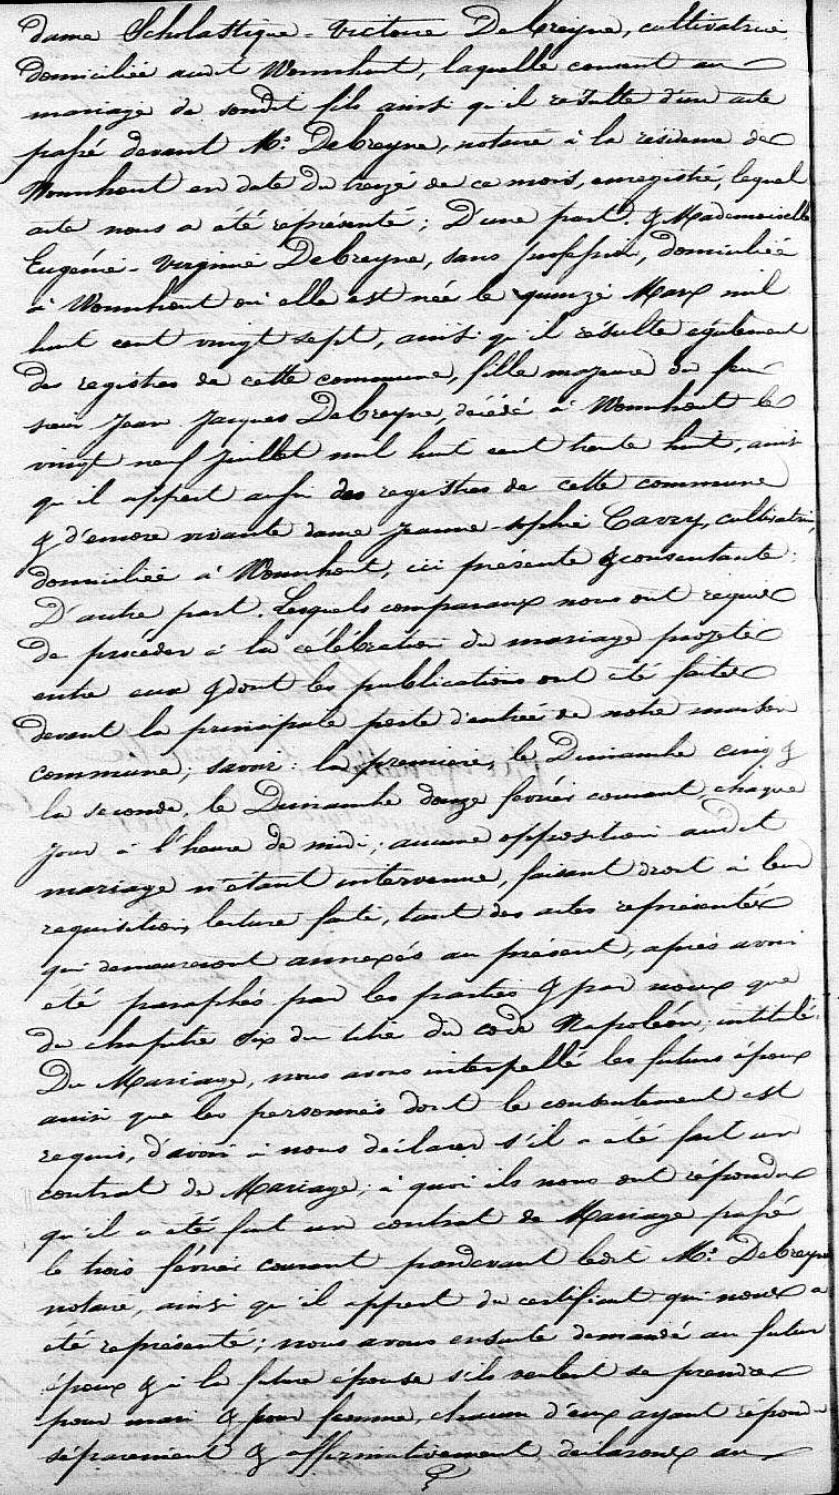 dame Scholastique-Victoire Debreyne, cultivatrice
domiciliée audit Wormhout, laquelle consent au
mariage de sondit fils ainsi qu'il resulte d'un acte
passé devant Mr. Debreyne, notaire à la résidence de
Wormhout en date du treize de ce mois, enregistré, lequel
acte nous a été représenté; D'une part. & Mademoiselle
Eugénie-Virginie Debreyne, sans profession, domiciliée
à Wormhout où elle est née le quinze Mars mil
huit cent vingt sept, ainsi qu'il résulte également
des registres de cette commune, fille majeure de feu
sieur Jean Jacques Debreyne, décédé à Wormhout le
vingt neuf Juillet mil huit cent trente huit, ainsi
qu'il appert aussi des registres de cette commune
& d'encore vivante dame Jeanne-Sophie Cavry, cultivatrice,
domiciliée à Wormhout, ici présente & consentante;
D'autre part. Lesquels comparans nous ont requis
de procéder à la célébration du mariage projeté
entre eux & dont les publications ont été faites
devant la principale porte d'entrée de notre maison
commune; savoir: la premiere, le Dimanche cinq &
la seconde, le Dimanche douze février courant, chaque
jour à l'heure de midi; aucune opposition audit
mariage n'étant intervenue, faisant droit à leur
requisition, lecture faite, tant des actes représentés
qui demeureront annexés au présent, après avoir
été paraphés par les parties & par nous que
du chapitre six du titre du code Napoléon, intitulé:
Du Mariage, nous avons interpellé les futurs époux
ainsi que les personnes dont le consentement est
requis, d'avoir à nous déclarer s'il a été fait un
contrat de Mariage; à quoi ils nous ont répondu
qu'il a été fait un contrat de Mariage passé
le trois février courant pardevant ledit Mr. Debreyne
notaire, ainsi qu'il appert du certificat qui nous a
été représenté; nous avons ensuite demandé au futur
époux & à la future épouse s'ils veulent se prendre
pour mari & pour femme, chacun d'eux ayant répondu
séparément & affirmativement, déclarons au